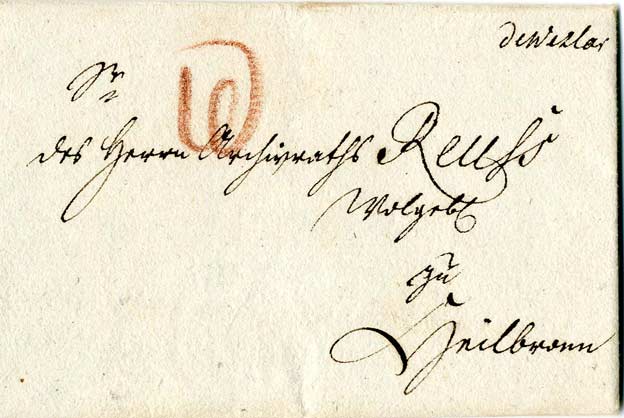 de Wetzlar
Sr
des Herrn Archivraths Reuss
Wolgeb
zu
Heilbronn